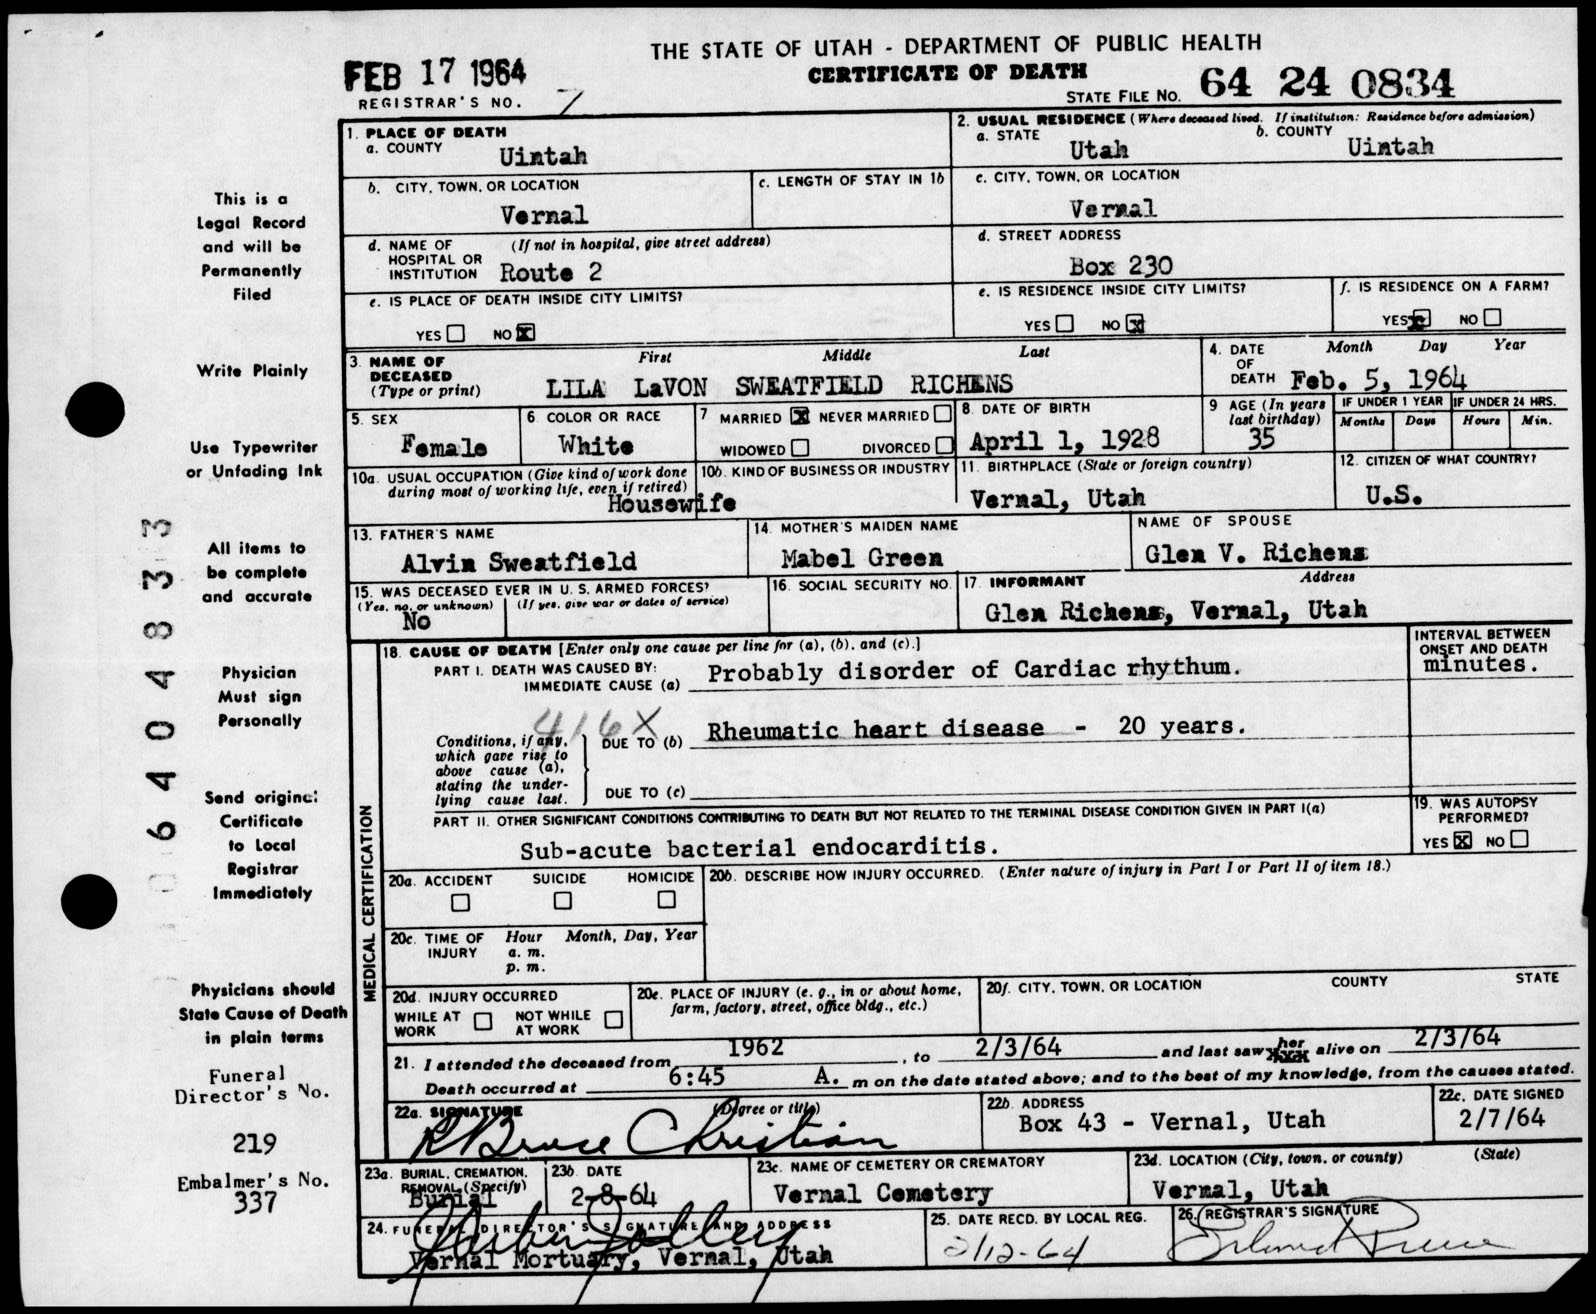 THE STATE OF UTAH - DEPARTMENT OF PUBLIC HEALTH
FEB 17 1964
CERTIFICATE OF DEATH
STATE FILE NO. 64 24 0834
REGISTRAR'S NO. 7
1. PLACE OF DEATH
a. COUNTY
Uintah
2. USUAL RESIDENCE (Where deceased lived. If institution: Residence before admission)
a. STATE
Utah
b. COUNTY
Uintah
b. CITY, TOWN, OR LOCATION
Vernal
c. LENGTH OF STAY IN 1b
c. CITY, TOWN, OR LOCATION
Vernal
d. NAME OF HOSPITAL OR INSTITUTION
(If not in hospital, give street address)
Route 2
d. STREET ADDRESS
Box 230
e. IS PLACE OF DEATH INSIDE CITY LIMITS?
YES NO X
e. IS RESIDENCE INSIDE CITY LIMITS?
YES NO X
f. IS RESIDENCE ON A FARM?
YES X NO
3. NAME OF DECEASED (Type or print)
First Middle Last
LILA LaVON SWEATFIELD RICHENS
4. DATE OF DEATH
Month Day Year
Feb. 5, 1964
5. SEX
Female
6 COLOR OR RACE
White
7 MARRIED X NEVER MARRIED
WIDOWED DIVORCED
8. DATE OF BIRTH
April 1, 1928
9 AGE (In years last birthday)
35
IF UNDER 1 YEAR
Months Days
IF UNDER 24 HRS.
Hours Min.
10a. USUAL OCCUPATION (Give kind of work done during most of working life, even if retired)
Housewife
10b. KIND OF BUSINESS OR INDUSTRY
11. BIRTHPLACE (State or foreign country)
Vernal, Utah
12. CITIZEN OF WHAT COUNTRY?
U.S.
13. FATHER'S NAME
Alvin Sweatfield
14. MOTHER'S MAIDEN NAME
Mabel Green
NAME OF SPOUSE
Glen V. Richens
15. WAS DECEASED EVER IN U. S. ARMED FORCES?
(Yes, no, or unknown) (If yes, give war or dates of service)
No
16. SOCIAL SECURITY NO.
17. INFORMANT Address
Glen Richens, Vernal, Utah
MEDICAL CERTIFICATION
18. CAUSE OF DEATH [Enter only one cause per line for (a), (b), and (c).]
PART I. DEATH WAS CAUSED BY:
IMMEDIATE CAUSE (a) Probably disorder of Cardiac rhythum.
INTERVAL BETWEEN ONSET AND DEATH
minutes.
416X
Conditions, if any, which gave rise to above cause (a), stating the underlying cause last.
DUE TO (b) Rheumatic heart disease - 20 years.
DUE TO (c)
PART II. OTHER SIGNIFICANT CONDITIONS CONTRIBUTING TO DEATH BUT NOT RELATED TO THE TERMINAL DISEASE CONDITION GIVEN IN PART I(a)
Sub-acute bacterial endocarditis.
19. WAS AUTOPSY PERFORMED?
YES X NO
20a. ACCIDENT SUICIDE HOMICIDE
20b. DESCRIBE HOW INJURY OCCURRED. (Enter nature of injury in Part I or Part II of item 18.)
20c. TIME OF INJURY
Hour Month, Day, Year
a. m.
p. m.
20d. INJURY OCCURRED
WHILE AT WORK NOT WHILE AT WORK
20e. PLACE OF INJURY (e. g., in or about home, farm, factory, street, office bldg., etc.)
20f. CITY, TOWN, OR LOCATION COUNTY STATE
21. I attended the deceased from 1962, to 2/3/64 and last saw her alive on 2/3/64
Death occurred at 6:45 A. m on the date stated above; and to the best of my knowledge, from the causes stated.
22a. SIGNATURE (Degree or title)
R Bruce Christian
22b. ADDRESS
Box 43 - Vernal, Utah
22c. DATE SIGNED
2/7/64
23a. BURIAL, CREMATION, REMOVAL (Specify)
Burial
23b. DATE
2-8-64
23c. NAME OF CEMETERY OR CREMATORY
Vernal Cemetery
23d. LOCATION (City, town, or county) (State)
Vernal, Utah
24. FUNERAL DIRECTOR'S SIGNATURE AND ADDRESS
Vernal Mortuary, Vernal, Utah
25. DATE RECD. BY LOCAL REG.
2/12-64
26. REGISTRAR'S SIGNATURE
This is a
Legal Record
and will be
Permanently
Filed
Write Plainly
Use Typewriter
or Unfading Ink
All items to
be complete
and accurate
Physician
Must sign
Personally
Send original
Certificate
to Local
Registrar
Immediately
Physicians should
State Cause of Death
in plain terms
Funeral
Director's No.
219
Embalmer's No.
337
06404833